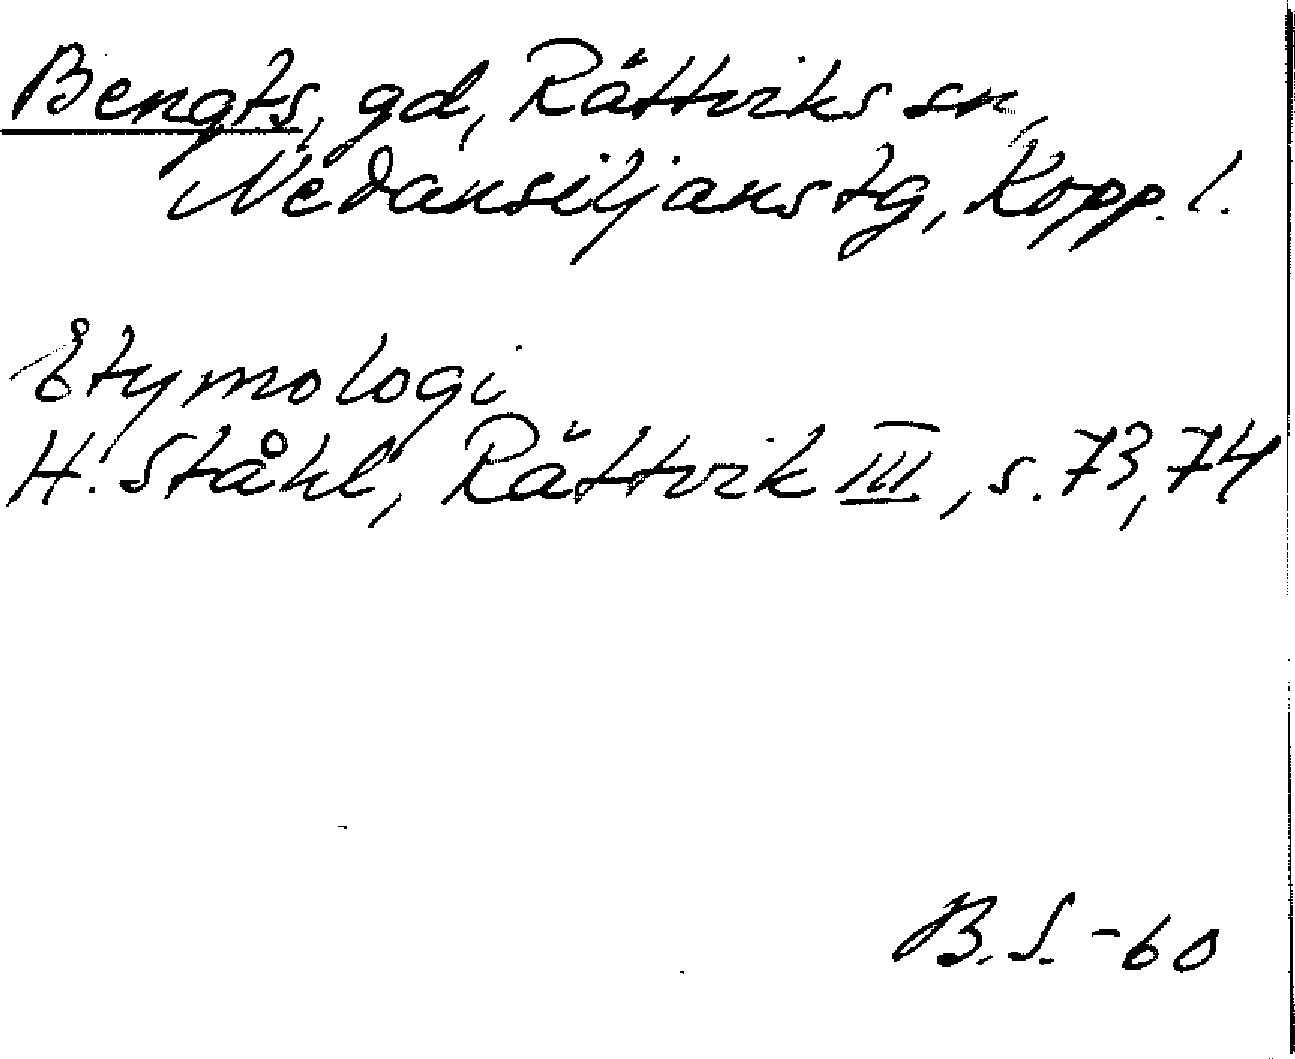 Bengts, gd, Rättviks sn,
Nedansiljans tg, Kopp. l.
Etymologi
H. Ståhl, Rättvik III, s. 73, 74
B.S. -60